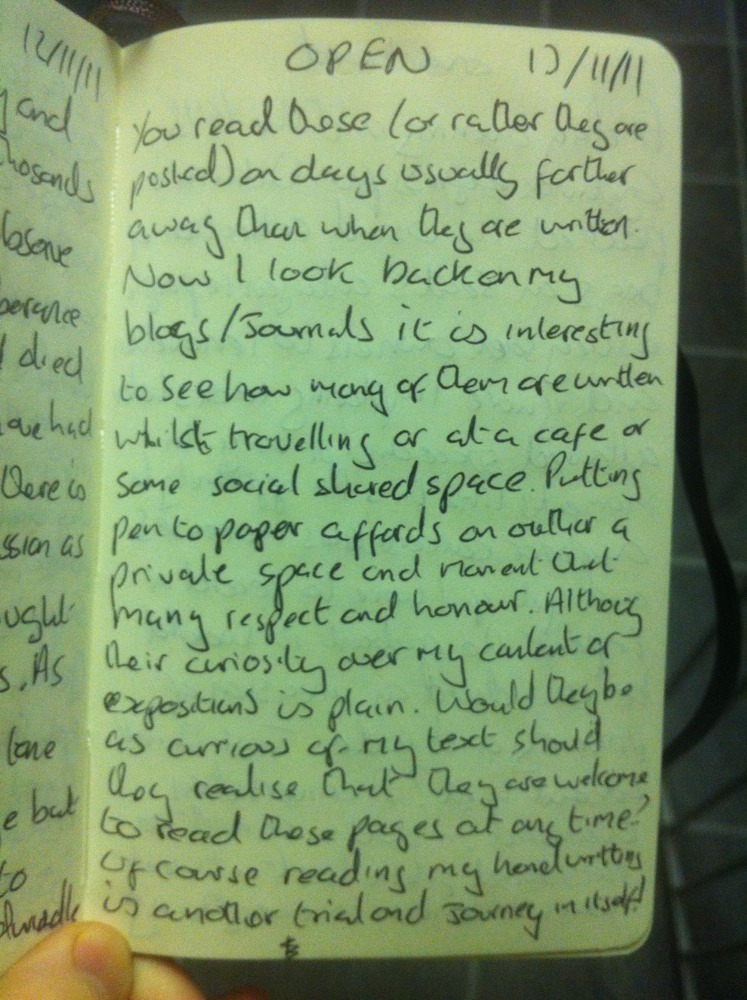 12/11/11
and
thosands
observe
died
have had
there is
ssion as
ught
s. As
lone
e but
to
OPEN 13/11/11
You read these (or rather they are
posted) on days usually farther
away than when they are written.
Now I look back on my
blogs/Journals it is interesting
to see how many of them are written
whilst travelling or at a cafe or
some social shared space. Putting
pen to paper affords an author a
private space and moment that
many respect and honour. Although
their curiosity over my content or
expositions is plain. Would they be
as currious of my text should
they realise that they are welcome
to read these pages at any time?
Of course reading my handwritting
is another trial and Journey in itself!